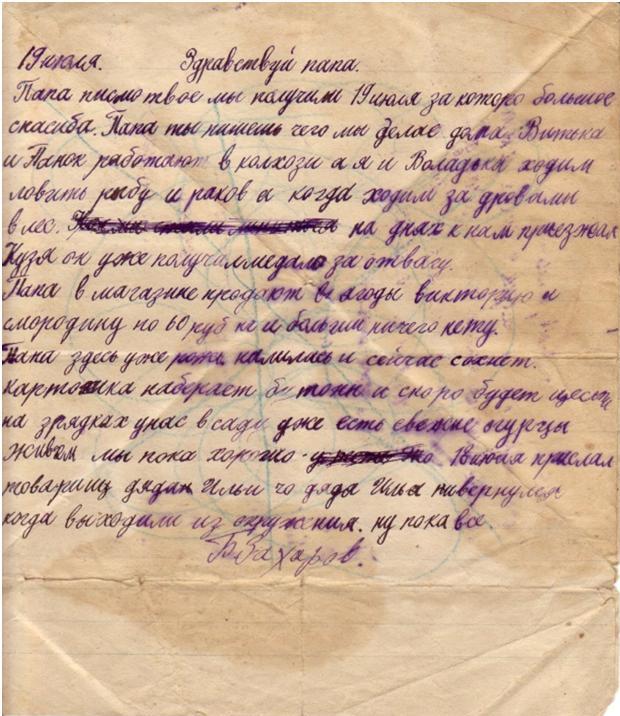 19 июля. Здравствуй папа.
Папа писмо твое мы получили 19 июля за которо большое
спасиба. Папа ты пишешь чего мы делае дома Витька
и Панок работают в колхози а я и Воладька ходим
ловить рыбу и раков а когда ходим за дровами
в лес. на днях к нам приезжал
Кузя он уже получил медаль за отвагу.
Папа в магазине продают ягоды викторую и
смородину по 60 руб кг и больши ничего нету.
Папа здесь уже рожь налилась и сейчас сохнет.
картошка наберает бутонн и скоро будет цвести
на зрядках унас в саду уже есть свежие огурцы
живем мы пока хорошо 18 июля прислал
товарищ дяди Ильи чо дядя Илья нивернулся
когда выходили из окружния. ну пока все.
Б Захаров.